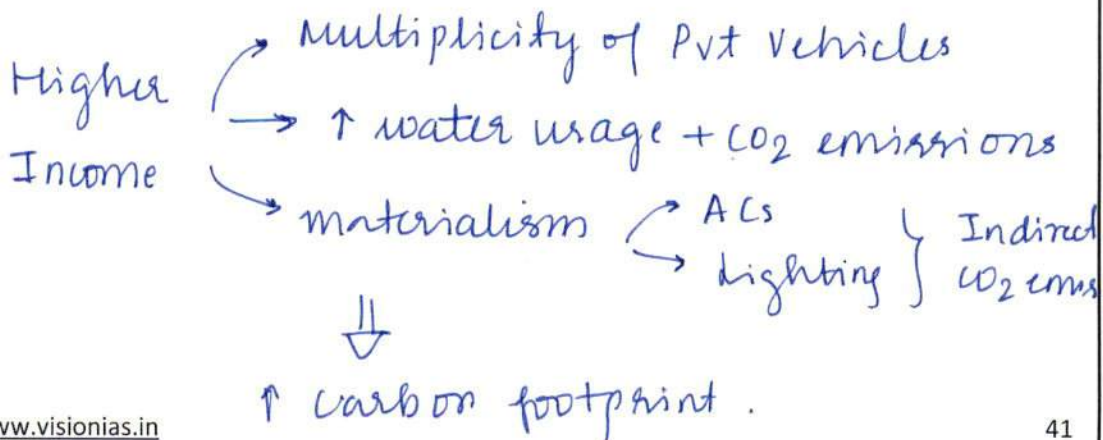 Higher Income
→ Multiplicity of Pvt Vehicles
→ ↑ water usage + CO2 emissions
→ materialism
→ ACs
→ Lighting
} Indirect
CO2 emis
⇓
↑ carbon footprint.
ww.visionias.in
41